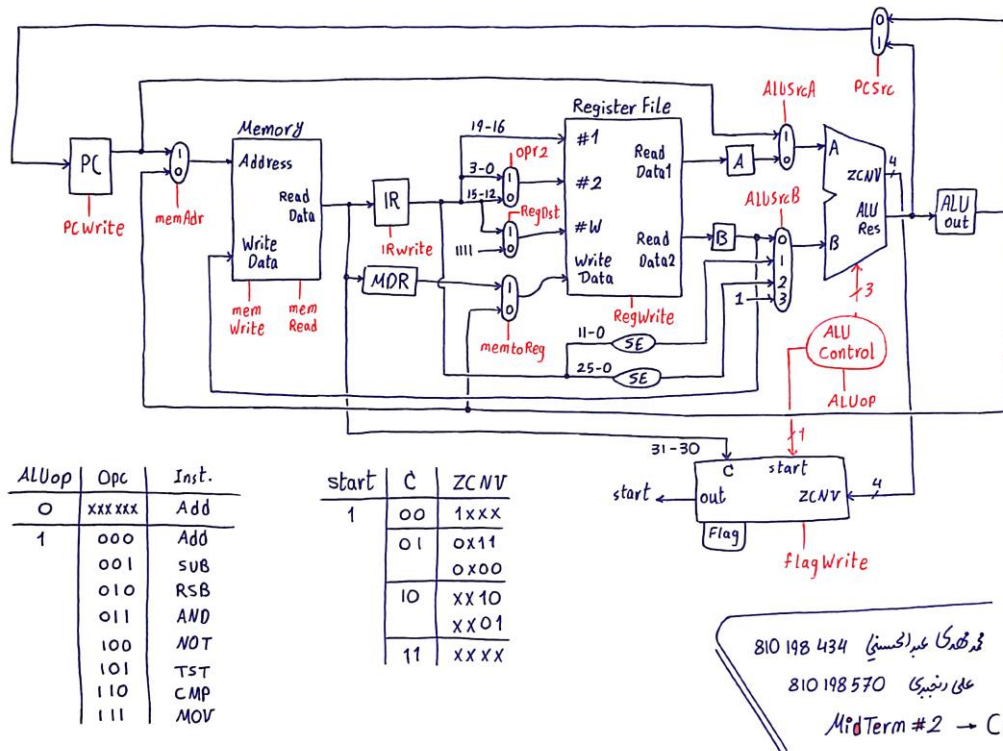 0
1
PCSrc
ALUSrcA
PC
PCWrite
1
0
memAdr
Memory
Address
Read
Data
Write
Data
mem
Write
mem
Read
IR
IRwrite
MDR
19-16
3-0
15-12
1111
opr2
1
0
RegDst
1
0
1
0
memtoReg
Register File
#1
#2
#W
Write
Data
Read
Data1
Read
Data2
RegWrite
A
B
1
0
ALUSrcB
0
1
2
3
1
11-0
SE
25-0
SE
A
B
4
ZCNV
ALU
Res
ALU
out
3
ALU
Control
ALUop
1
31-30
C
start
start
out
ZCNV
4
Flag
flagWrite
ALUop Opc Inst.
0 xxxxxx Add
1 000 Add
001 SUB
010 RSB
011 AND
100 NOT
101 TST
110 CMP
111 MOV
start C ZCNV
1 00 1xxx
01 0x11
0x00
10 xx10
xx01
11 xxxx
810 198 434 محمد مهدی عبدالحسینی
810 198 570 علی رنجبری
MidTerm #2 → C